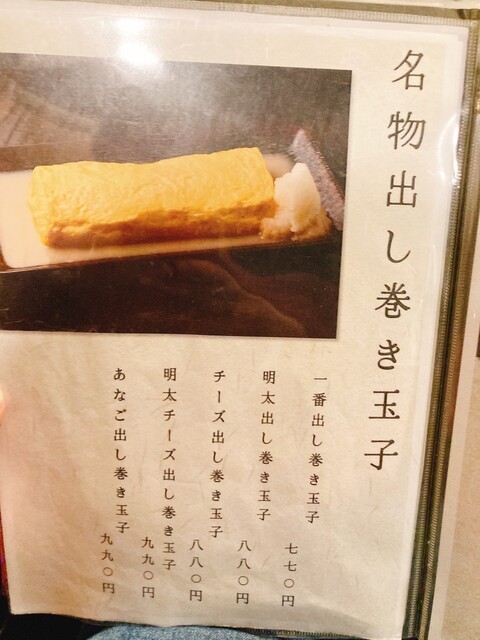 名物出し巻き玉子
一番出し巻き玉子
七七〇円
明太出し巻き玉子
八八〇円
チーズ出し巻き玉子
八八〇円
明太チーズ出し巻き玉子
九九〇円
あなご出し巻き玉子
九九〇円